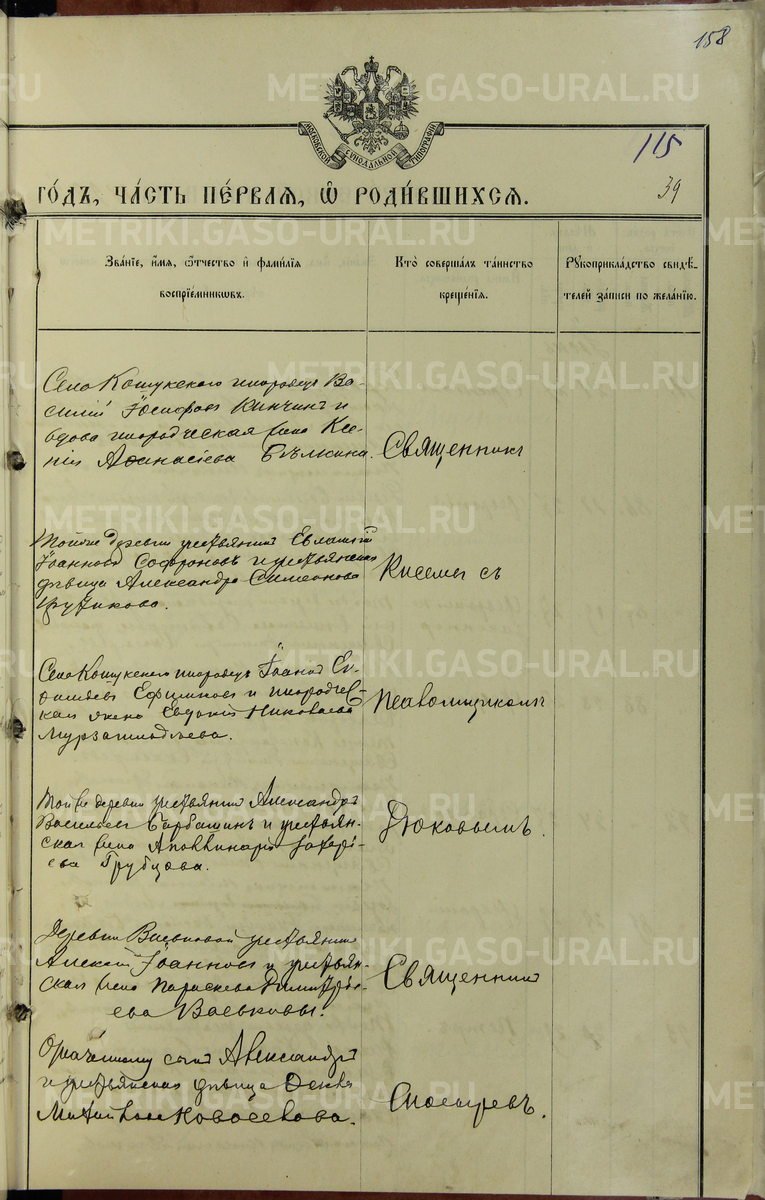 158
МОСКОВСКОЙ СѴНОДАЛЬНОЙ ТИПОГРАФІИ
115
39
ГОДЪ, ЧАСТЬ ПЕРВАЯ, Ѡ РОДИВШИХСЯ.
Званіе, имя, отчество и фамилія
воспріемниковъ.
Кто совершалъ таинство
крещенія.
Рукоприкладство свидѣ-
телей записи по желанію.
Села Кошукскаго инородецъ Ва-
силий Іосифовъ Кинчинъ и
вдова инородческая жена Ксе-
нія Аѳанасіева Бѣлкина.
Священникъ
Той же деревни крестьянинъ
Іоанновъ Софроновъ и крестьянская
дѣвица Александра Симеонова
съ
Села Кошукскаго инородецъ Іоаннъ
Ефимовъ и инородчес-
кая жена Евдокія Николаева
Псаломщикомъ
Той же деревни крестьянинъ Александръ
Васильевъ Барбашинъ и крестьян-
ская жена Аполлинарія Захарі-
ева Грубцова.
Дюковымъ.
Деревни Васьковой крестьянинъ
Алексѣй Іоанновъ и крестьян-
ская жена Параскева Димитрі-
ева Васьковы.
Священник
сын Александръ
и крестьянская дѣвица
Михайлова Новоселова.
METRIKI.GASO-URAL.RU